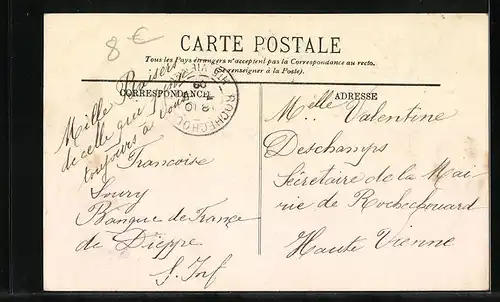 8 €
CARTE POSTALE
Tous les Pays étrangers n'acceptent pas la Correspondance au recto.
Se renseigner à la Poste).
CORRESPONDANCE
ADRESSE
Mille Baisers
de celle qui
toujours à vous
Francoise
Soury
Banque de France
de Dieppe
S. Inf
ROCHECHOU
Melle Valentine
Deschamps
Sécretaire de la Mai
rie de Rochechouard
Haute Vienne